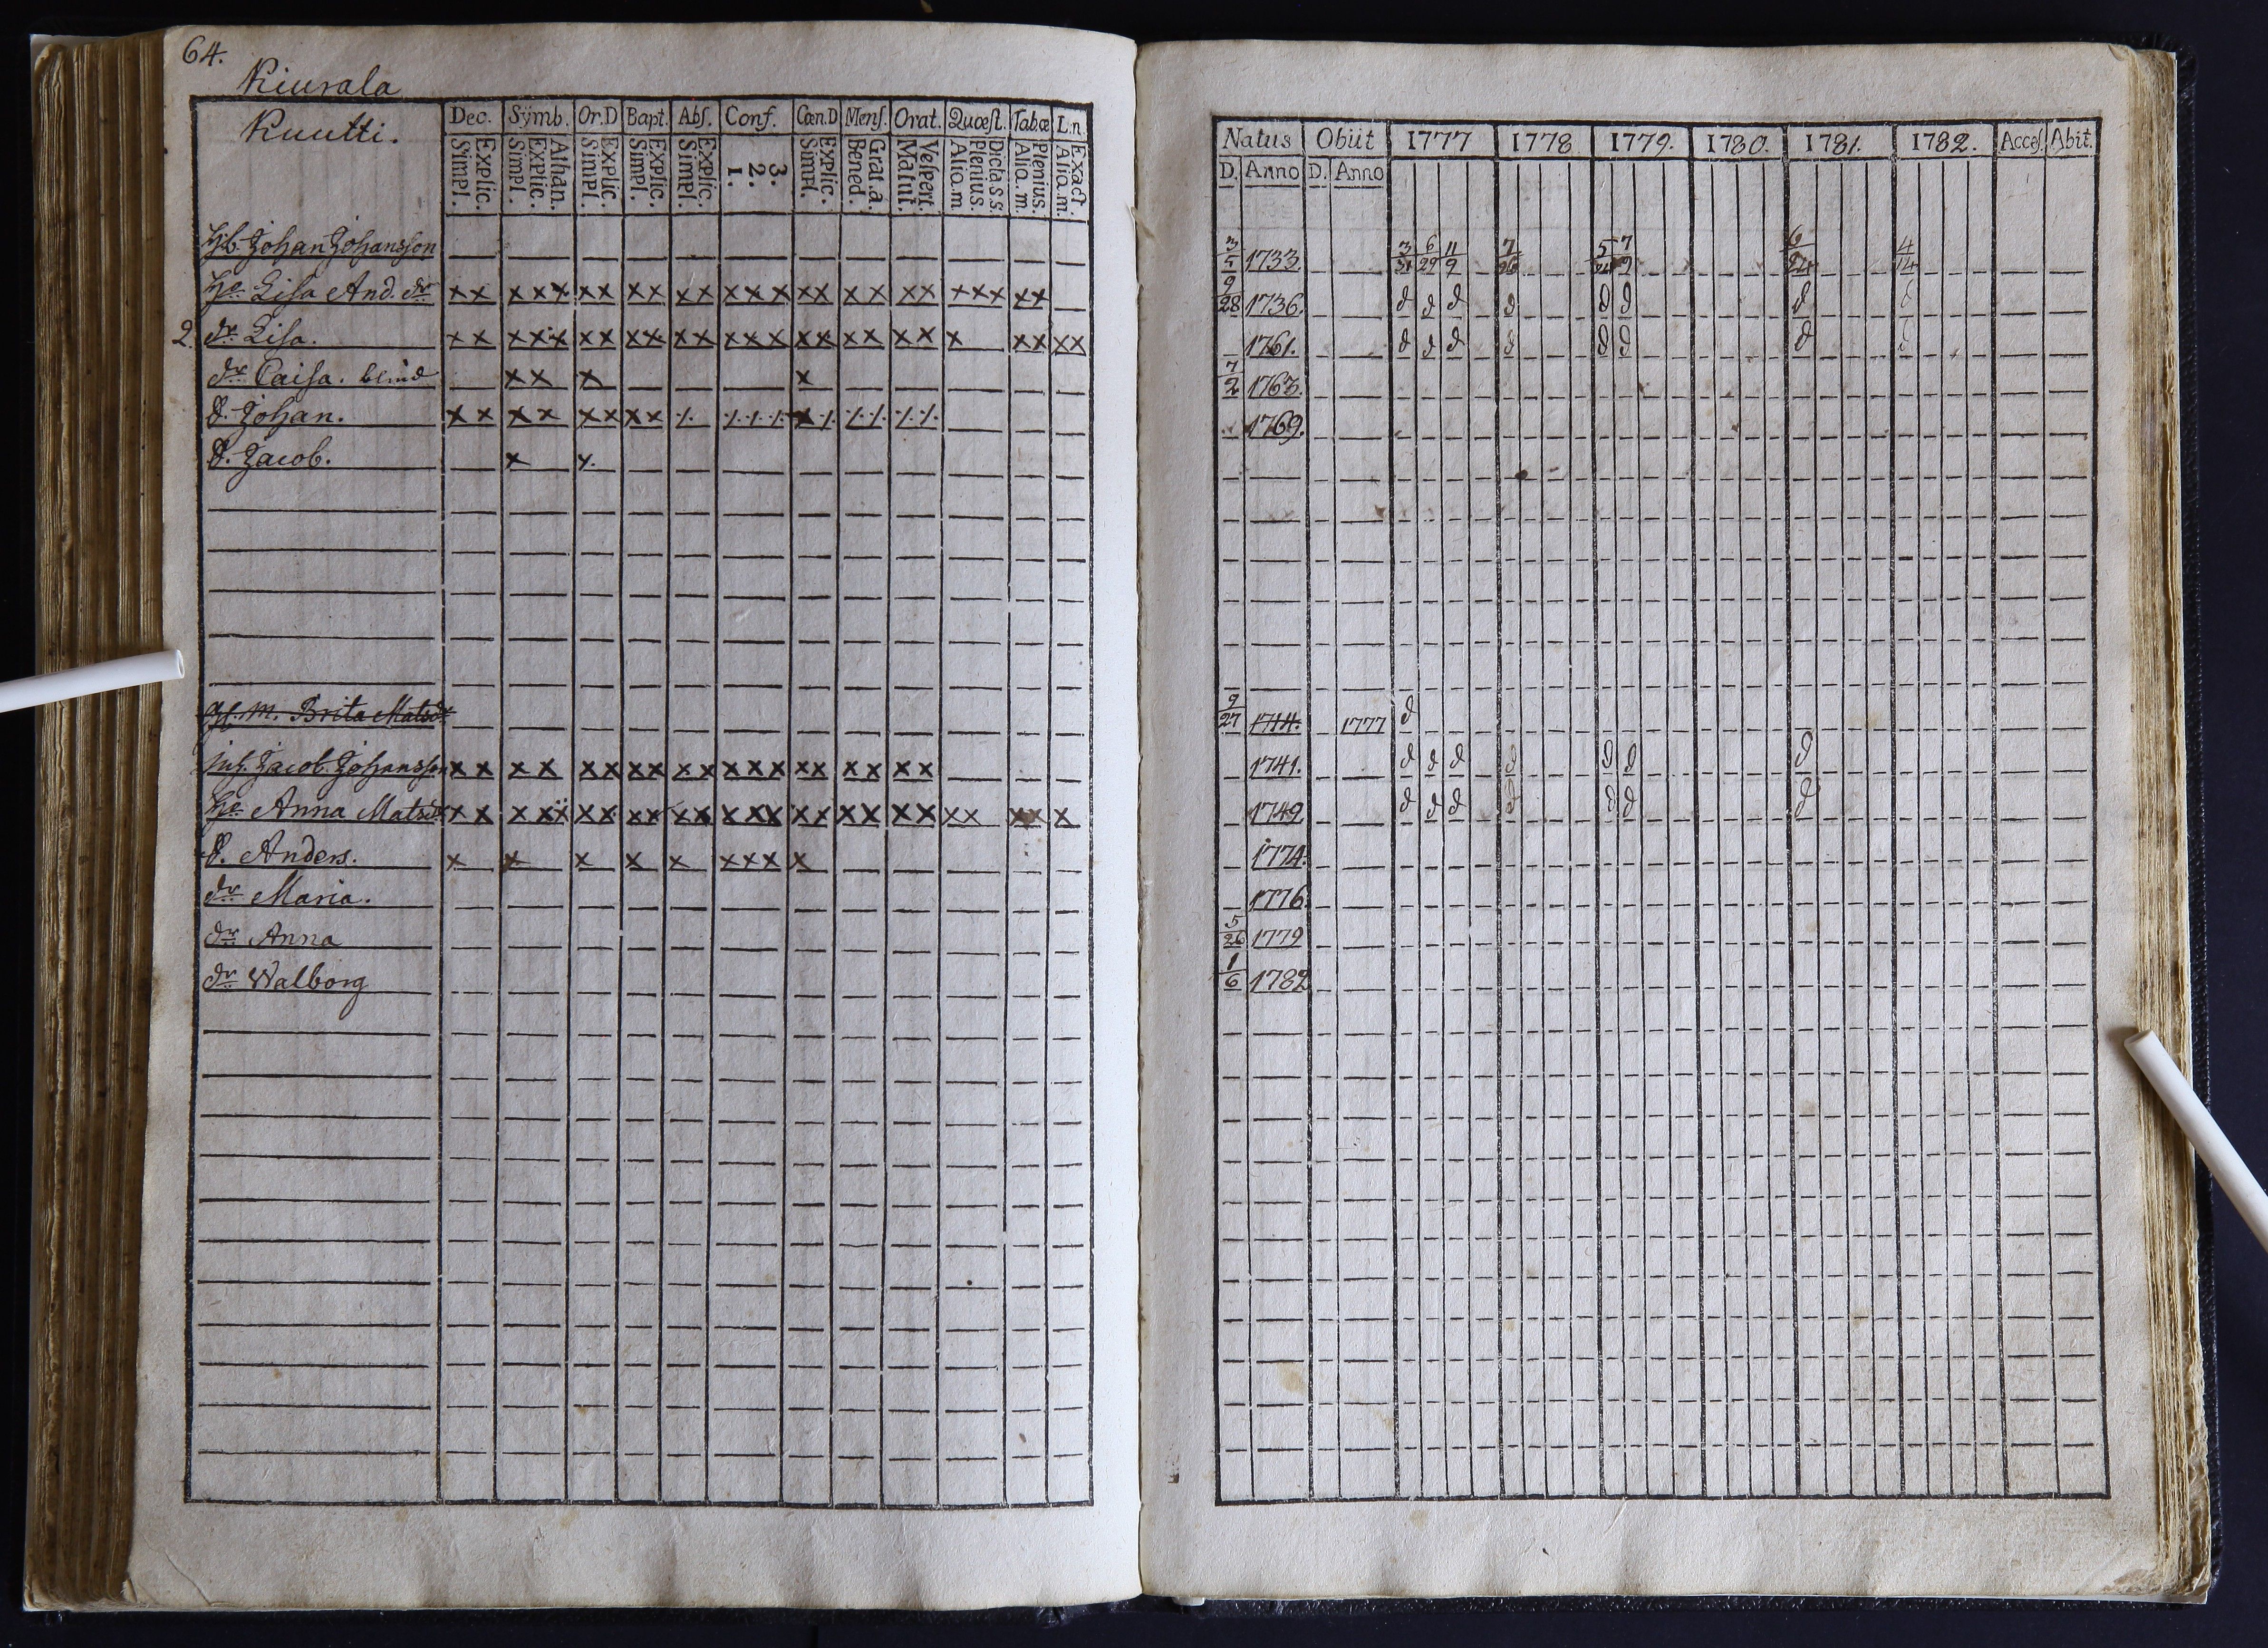 64.
Kiurala
Kuutti.
Dec. Sÿmb. Or.D Bapt. Abs. Conf. Cœn.D Mens. Orat. Quæst. Tab.œ L.n.
Explic. Simpl. Athan. Explic. Simpl. Explic. Simpl. Explic. Simpl. Explic. Simpl. 3. 2. 1. Explic. Simpl. Grat.a. Bened. Vespert. Matut. Dicta s.s. Plenius. Aliq.m Plenius. Aliq.m. Exact. Aliq.m.
Hb. Johan Johansson
Ho Lisa And. dr x x x x x x x x x x x x x x x x x x x x x x x x x x
2. dr Lisa. x x x x x x x x x x x x x x x x x x x x x x x x x x
dr Caisa. blind x x x x
S. Johan. x x x x x x x x ⁒ ⁒ ⁒ ⁒ x ⁒ ⁒ ⁒ ⁒ ⁒
S. Jacob. x x
M. Brita Matsdr
Inh. Jacob. Johansson x x x x x x x x x x x x x x x x x x x
Ho Anna Matsdr x x x x x x x x x x x x x x x x x x x x x x x x x
S. Anders. x x x x x x x x x
dr Maria.
dr Anna
dr Walborg
Natus Obiit 1777 1778 1779. 1780. 1781. 1782. Acces. Abit.
D. Anno D. Anno
3/5 1733 3/31 6/29 11/9 7/26 5/24 7/9 6/24 4/14
9/28 1736. d d d d d d d d
1761. d d d d d d d d
7/2 1763.
1769.
9/27 1744. 1777 d
1741. d d d d d d d
1749 d d d d d d d
1774.
1776.
5/26 1779
1/6 1782